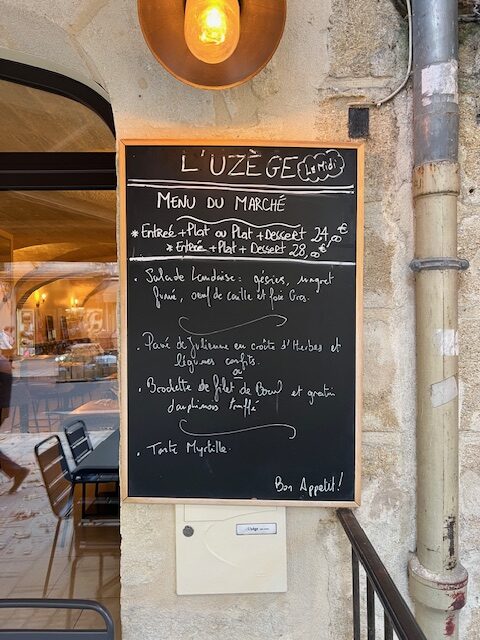 L'UZÈGE Le Midi
MENU DU MARCHÉ
* Entrée + Plat ou Plat + Dessert 24,00€
* Entrée + Plat + Dessert 28,00€
• Salade Landaise : gésiers, magret
fumé, oeuf de caille et foie Gras.
• Pavé de Julienne en croûte d'Herbes et
légumes confits.
ou
• Brochette de filet de Boeuf et gratin
dauphinois truffé
• Tarte Myrtille.
Bon Appetit !
L'uzège